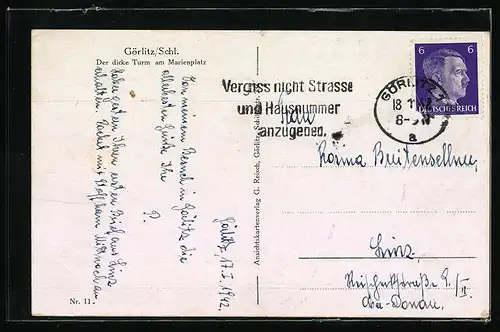 Görlitz/Schl.
Der dicke Turm am Marienplatz
Von meinem Besuch in Görlitz die
allerbesten Grüße Ihr
P.
Habe gestern Ihren ersten Brief aus Linz
erhalten. Paket mit Stoff kam Mittwoch an.
Görlitz, 17.I.1942.
Nr. 11.
Ansichtskartenverlag G. Reisch, Görlitz/Schl.
Vergiss nicht Strasse
und Hausnummer
anzugeben.
GÖRLITZ
18 1
8-9
a
6 6
DEUTSCHES REICH
Frau
Breitensellner,
Linz,
9/II
a/d. Donau.